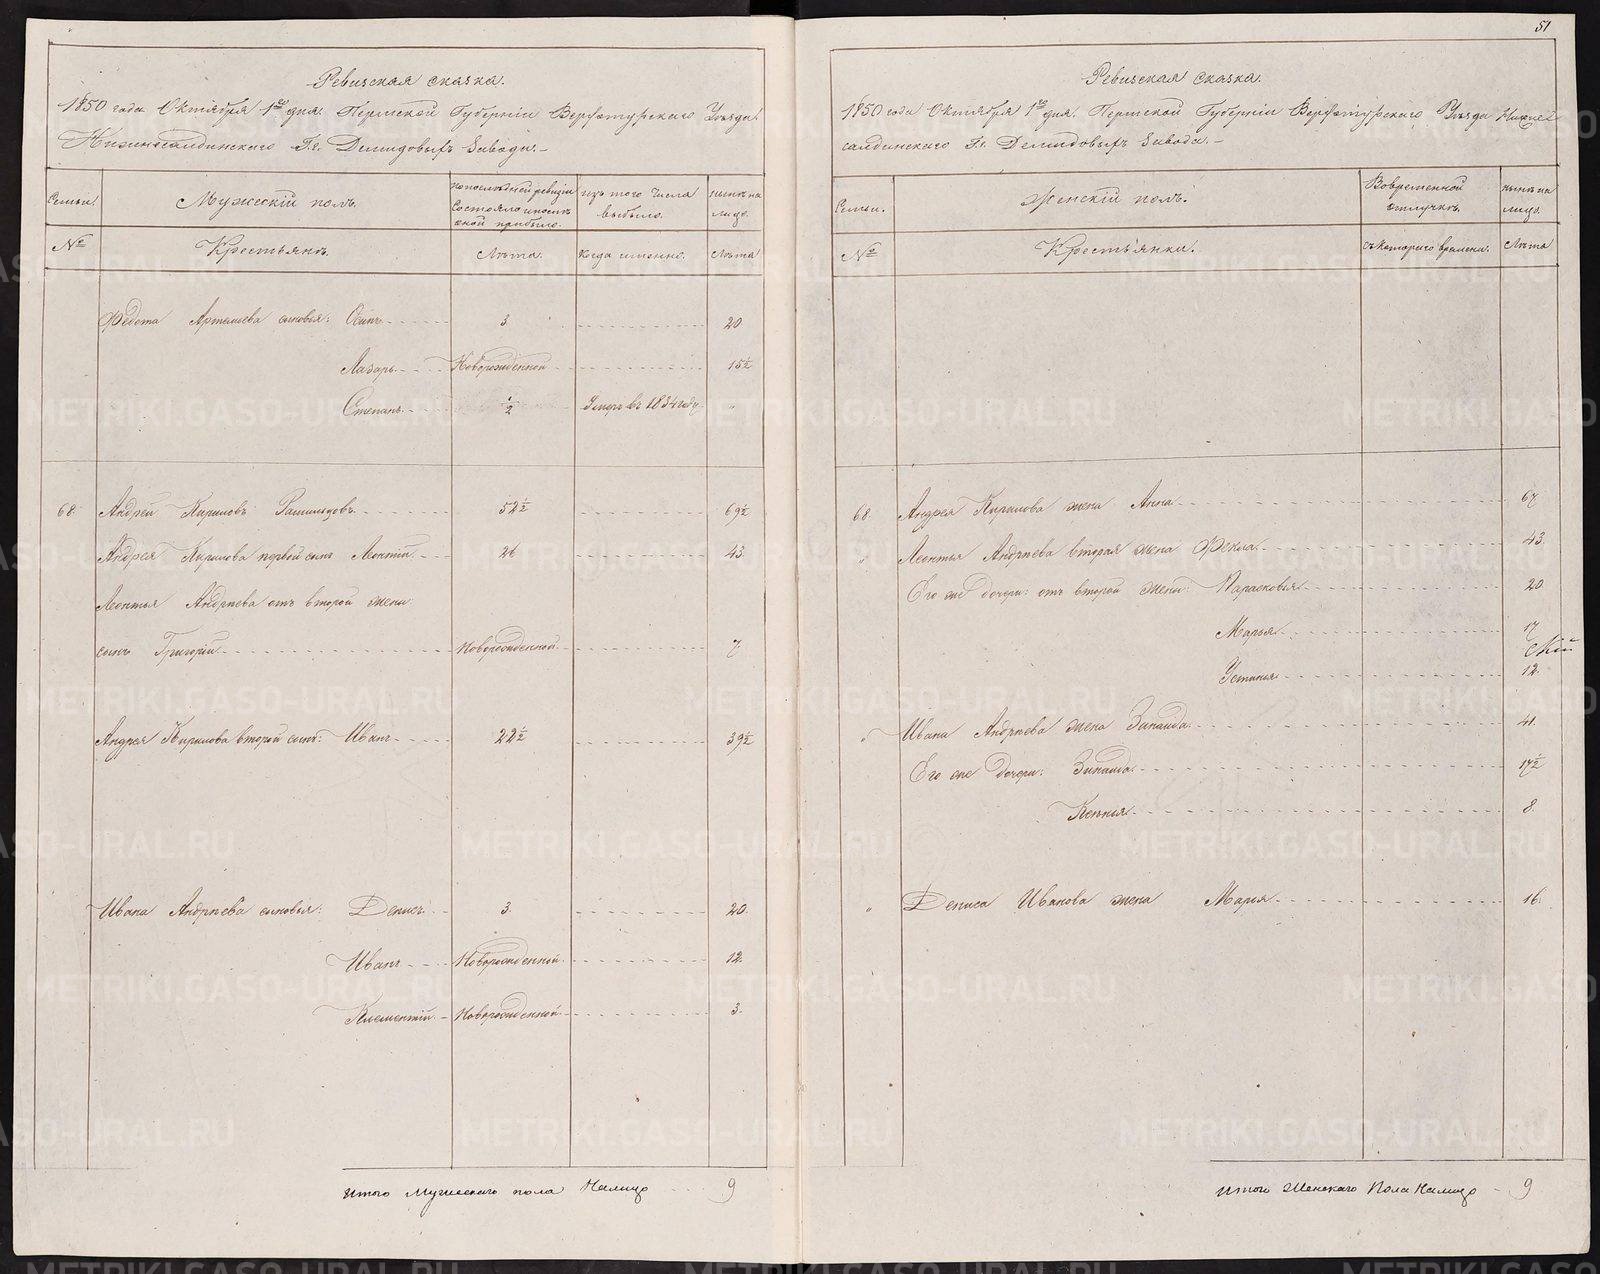 Ревизская сказка.
1850 года Октября 1го дня. Пермской Губерніи Верхотурскаго Уѣзда
Нижнесалдинскаго Г.г. Демидовыхъ Завода. –
Семьи.
Мужескій полъ.
По послѣдней ревизіи состояло и послѣ оной прибыло.
Изъ того числа выбыло.
Нынѣ на лицо.
№
Крестьянъ.
Лѣта.
Когда именно.
Лѣта
Федота Артемьева сыновья: Осипъ 3 20
Лазарь Новорожденной 15½
Степанъ ½ Умеръ въ 1834 году "
68. Андрей Кириловъ 52½ 69½
Андрея Кирилова первой сынъ Леонтій 26 43.
Леонтья Андреева отъ второй жены
сынъ Григорій Новорожденной 7
Андрея Кирилова второй сынъ: Иванъ 22½ 39½
Ивана Андреева сыновья: Денисъ 3. 20.
Иванъ Новорожденной 12.
Клементій Новорожденной 3.
Итого Мужескаго пола Налицо 9
51
Ревизская сказка.
1850 года Октября 1го дня. Пермской Губерніи Верхотурскаго Уѣзда Нижне
салдинскаго Г.г. Демидовыхъ Завода. –
Семьи.
Женскій полъ.
Во временной отлучкѣ.
Нынѣ на лицо.
№
Крестьянки.
Съ котораго времени.
Лѣта
68. Андрея Кирилова жена Анна 67
" Леонтья Андреева вторая жена Фекла 43.
Его же дочери: отъ второй жены: Парасковья 20
Марья 17
Устинья 12.
" Ивана Андреева жена Зинаида 41.
Его же дочери: Зинаида 17½
Ксенья 8.
" Дениса Иванова жена Марья 16.
Итого Женскаго Пола Налицо – 9
METRIKI.GASO-URAL.RU